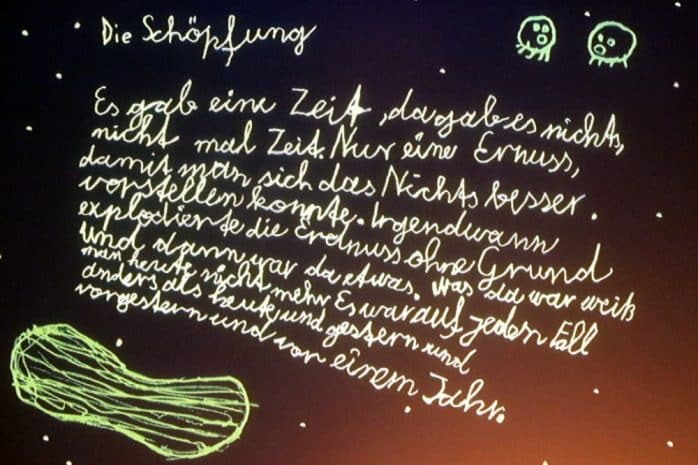 Die Schöpfung
Es gab eine Zeit, da gab es nichts,
nicht mal Zeit. Nur eine Ernuss,
damit man sich das Nichts besser.
vorstellen konnte. Irgendwann
explodierte die Erdnuss ohne Grund
und dann war da etwas. Was da war weiß
man heute nicht mehr Es war auf jeden Fall
anders als heute und gestern und
vorgestern und vor einem Jahr.